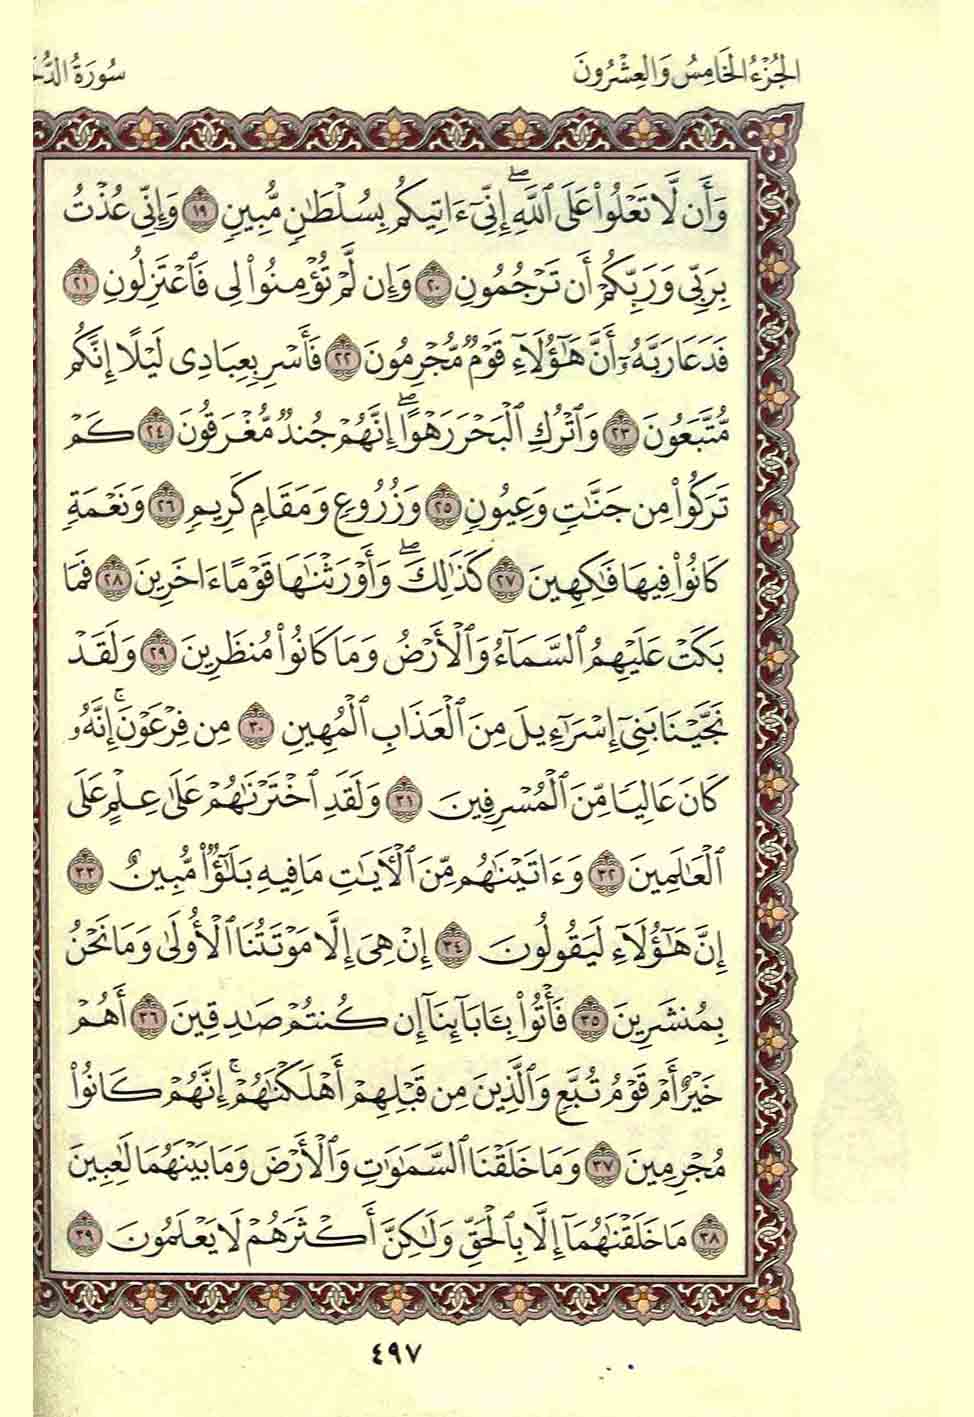 الجُزْءُ الخَامِسُ وَالعِشْرُونَ
سُورَةُ الدُّخَ
وَأَن لَّا تَعْلُوا۟ عَلَى ٱللَّهِ ۖ إِنِّىٓ ءَاتِيكُم بِسُلْطَٰنٍ مُّبِينٍ ١٩ وَإِنِّى عُذْتُ
بِرَبِّى وَرَبِّكُمْ أَن تَرْجُمُونِ ٢٠ وَإِن لَّمْ تُؤْمِنُوا۟ لِى فَٱعْتَزِلُونِ ٢١
فَدَعَا رَبَّهُۥٓ أَنَّ هَٰٓؤُلَآءِ قَوْمٌ مُّجْرِمُونَ ٢٢ فَأَسْرِ بِعِبَادِى لَيْلًا إِنَّكُم
مُّتَّبَعُونَ ٢٣ وَٱتْرُكِ ٱلْبَحْرَ رَهْوًا ۖ إِنَّهُمْ جُندٌ مُّغْرَقُونَ ٢٤ كَمْ
تَرَكُوا۟ مِن جَنَّٰتٍ وَعُيُونٍ ٢٥ وَزُرُوعٍ وَمَقَامٍ كَرِيمٍ ٢٦ وَنَعْمَةٍ
كَانُوا۟ فِيهَا فَٰكِهِينَ ٢٧ كَذَٰلِكَ ۖ وَأَوْرَثْنَٰهَا قَوْمًا ءَاخَرِينَ ٢٨ فَمَا
بَكَتْ عَلَيْهِمُ ٱلسَّمَآءُ وَٱلْأَرْضُ وَمَا كَانُوا۟ مُنظَرِينَ ٢٩ وَلَقَدْ
نَجَّيْنَا بَنِىٓ إِسْرَٰٓءِيلَ مِنَ ٱلْعَذَابِ ٱلْمُهِينِ ٣٠ مِن فِرْعَوْنَ ۚ إِنَّهُۥ
كَانَ عَالِيًا مِّنَ ٱلْمُسْرِفِينَ ٣١ وَلَقَدِ ٱخْتَرْنَٰهُمْ عَلَىٰ عِلْمٍ عَلَى
ٱلْعَٰلَمِينَ ٣٢ وَءَاتَيْنَٰهُم مِّنَ ٱلْءَايَٰتِ مَا فِيهِ بَلَٰٓؤٌا۟ مُّبِينٌ ٣٣
إِنَّ هَٰٓؤُلَآءِ لَيَقُولُونَ ٣٤ إِنْ هِىَ إِلَّا مَوْتَتُنَا ٱلْأُولَىٰ وَمَا نَحْنُ
بِمُنشَرِينَ ٣٥ فَأْتُوا۟ بِـَٔابَآئِنَآ إِن كُنتُمْ صَٰدِقِينَ ٣٦ أَهُمْ
خَيْرٌ أَمْ قَوْمُ تُبَّعٍ وَٱلَّذِينَ مِن قَبْلِهِمْ أَهْلَكْنَٰهُمْ ۚ إِنَّهُمْ كَانُوا۟
مُجْرِمِينَ ٣٧ وَمَا خَلَقْنَا ٱلسَّمَٰوَٰتِ وَٱلْأَرْضَ وَمَا بَيْنَهُمَا لَٰعِبِينَ
٣٨ مَا خَلَقْنَٰهُمَآ إِلَّا بِٱلْحَقِّ وَلَٰكِنَّ أَكْثَرَهُمْ لَا يَعْلَمُونَ ٣٩
٤٩٧